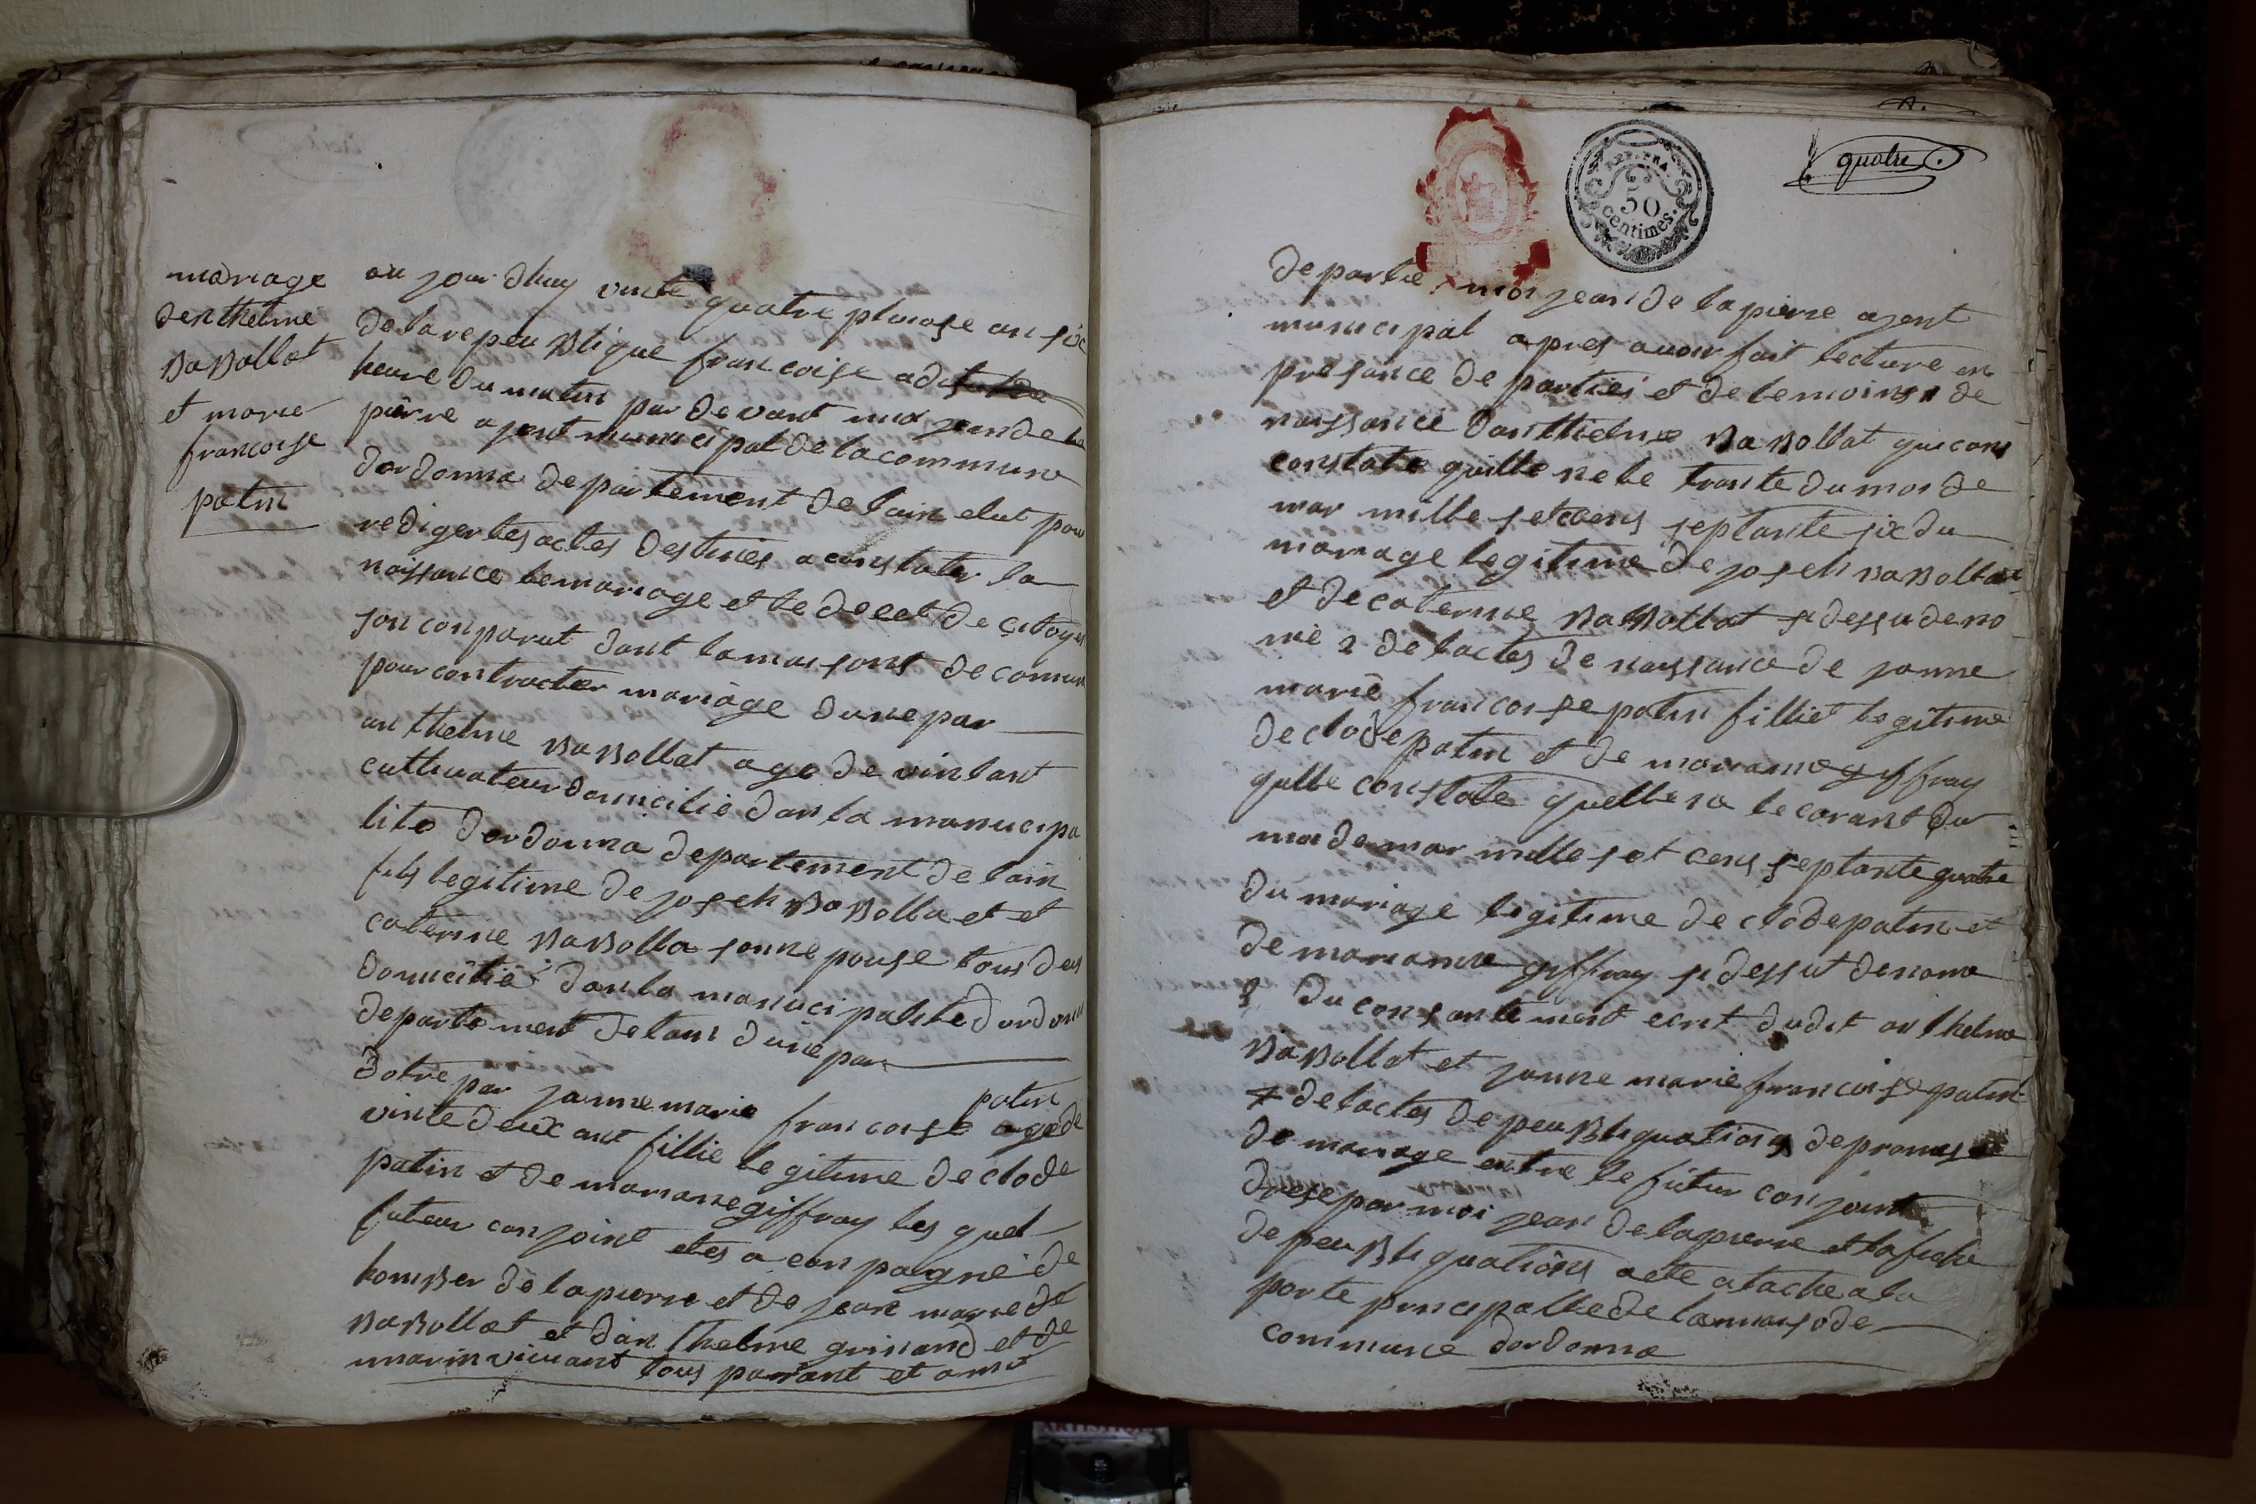 mariage
denthelme
Babollat
et marie
francoise
patin
au jour dhuy vinte quatre pluiose an six
de la repeublique francoise a dix
heure du matin par devant moi jean de la
pierre agent municipal de la commune
dordonna departement de lain elut pour
rediger les actes destinés a constater la
naissance le mariage et le deces de citoyen
son conparut dant la maisont de comun
pour contracter mariage dune par
anthelme Babollat age de vint ant
cultivateur domicilié dan la manucipa
lite dordonna departement de lain
fils legitime de joseh Babollat et
caterine Babolla sonne pouse tous deus
domicilié dan la manucipalite dordonna
departement de lain dune par
dotre par janne marie francoise patin age de
vinte deux ant fillie legitime de clode
patin et de marianne giffray les quel
futeur conjoint etes a conpagné de
homber de lapierre et de jean marie de
Babollat et dan thelme grinand et de
marin vivant tous parant et ami
quatre
REP. FRA.
50
centimes.
de partie moi jean de la pierre agent
municipal apres avoir fait lecture en
presance de parties et de temoins 1 de
naissance danthelme Babollat qui cons
constate quille ne le trante du moi de
mar mille setcens septante six du
mariage legitime de joseh Babollat
et de caterine Babollat si dessu deno
mé 2 de lactes de naissance de janne
marie francoise patin fillie legitime
de clode patin et de marianne giffray
quelle constate quelle na le corant du
moi de mar mille set cens septante quatre
du mariage legitime de clode patin et
de marianne giffray si dessut denome
3 du consantement ecrit dudit anthelme
Babollat et janne marie francoise patin
4 de lactes de peubliquations de promes
de mariage entre le futur conjoint
drese par moi jean de lapierre et lafiche
de peubliquations acte atache a la
porte principalle de la maiso de
commune dordonna